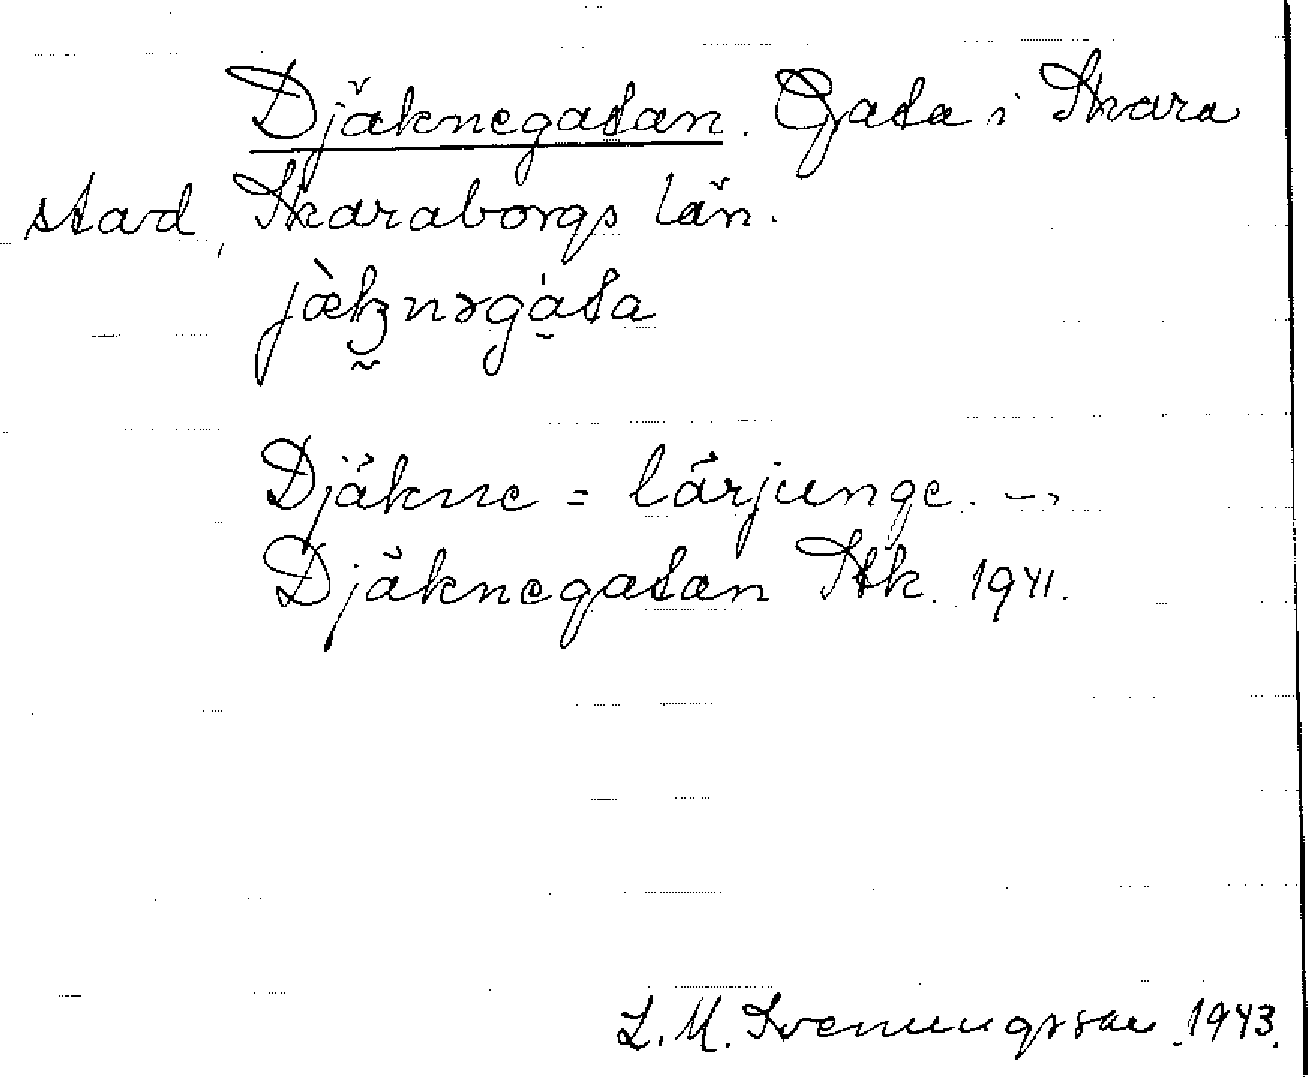 Djäknegatan. Gata i Skara
stad, Skaraborgs län.
jæ̀knəgàta
Djäkne = lärjunge. —,
Djäknegatan Stk. 1941.
L. M. Svenungsson 1943.